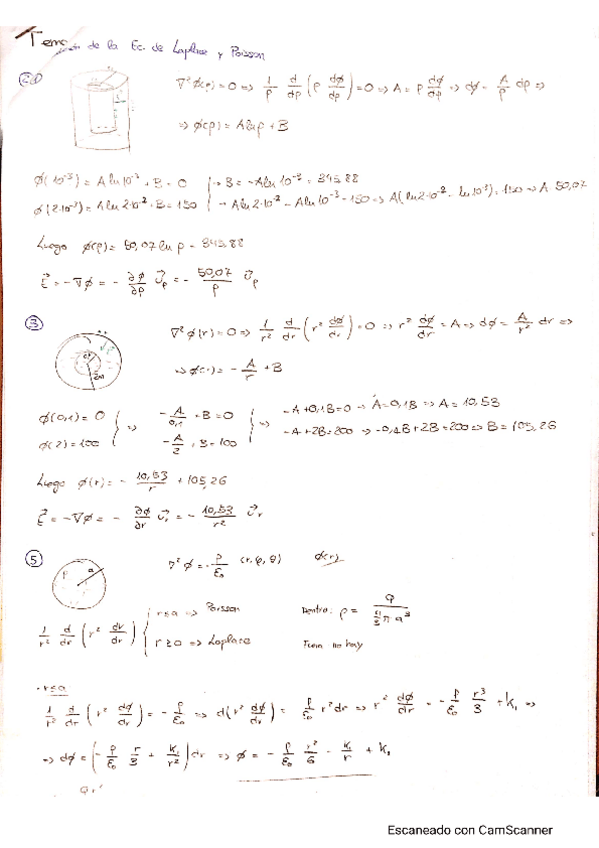 Tema de la Ec. de Laplace y Poisson
②
∇²φ(ρ)=0 ⇒ 1/ρ d/dρ (ρ dφ/dρ)=0 ⇒ A = ρ dφ/dρ ⇒ dφ = A/ρ dρ ⇒
⇒ φ(ρ) = A lnρ + B
φ(10⁻³) = A ln10⁻³ + B = 0 → B = -A ln10⁻³ = 345,88
φ(2·10⁻²) = A ln2·10⁻² + B = 150 → A ln2·10⁻² - A ln10⁻³ = 150 ⇒ A(ln2·10⁻² - ln10⁻³) = 150 ⇒ A 50,07
Luego φ(ρ) = 50,07 ln ρ - 345,88
E = -∇φ = - ∂φ/∂ρ Uρ = - 50,07/ρ Uρ
③
∇²φ(r) = 0 ⇒ 1/r² d/dr (r² dφ/dr) = 0 ⇒ r² dφ/dr = A ⇒ dφ = A/r² dr ⇒
⇒ φ(r) = - A/r + B
φ(0,1) = 0 ⇒ -A/0,1 + B = 0 ⇒ -A + 0,1B = 0 → A = 0,1B ⇒ A = 10,53
φ(2) = 100 -A/2 + B = 100 -A + 2B = 200 ⇒ -0,1B + 2B = 200 ⇒ B = 105,26
Luego φ(r) = - 10,53/r + 105,26
E = -∇φ = - ∂φ/∂r Ur = - 10,53/r² Ur
⑤
ρ a
∇²φ = - ρ/ε₀ (r, φ, θ) φ(r)
1/r² d/dr (r² dv/dr) r≤a ⇒ Poisson Dentro: ρ = Q / 4/3 π a³
r≥a ⇒ Laplace Fuera no hay
· r≤a
1/r² d/dr (r² dφ/dr) = - ρ/ε₀ ⇒ d(r² dφ/dr) = - ρ/ε₀ r² dr ⇒ r² dφ/dr = - ρ/ε₀ r³/3 + k₁ ⇒
⇒ dφ = (- ρ/ε₀ r/3 + k₁/r²) dr ⇒ φ = - ρ/ε₀ r²/6 - k₁/r + k₁
Escaneado con CamScanner